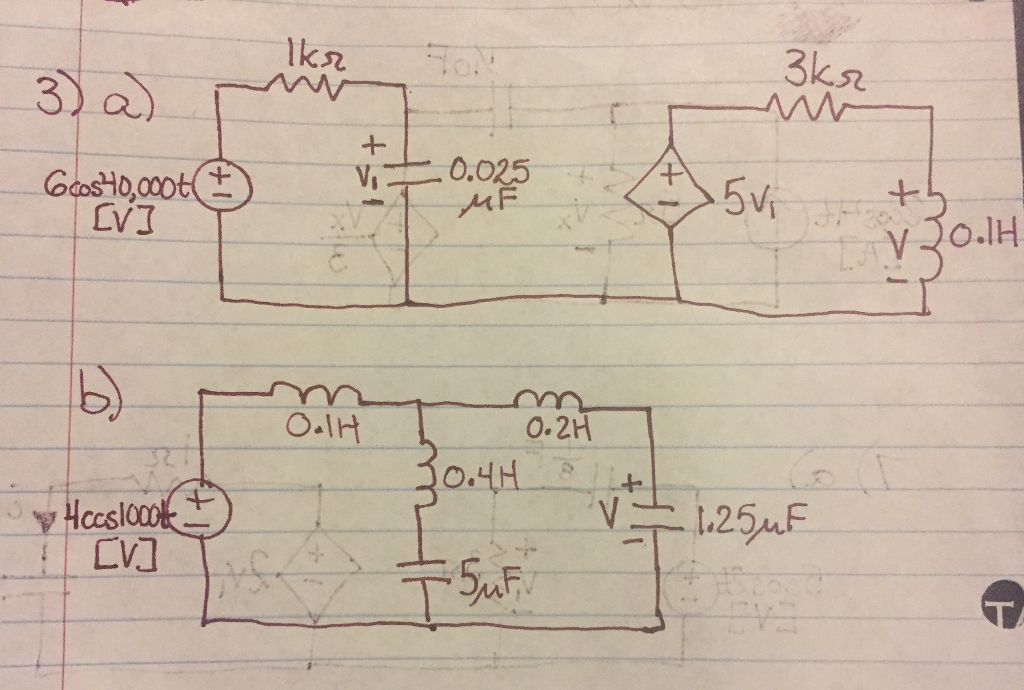 3) a)
1kΩ
3kΩ
6cos40,000t
[V]
+
V₁
-
0.025
μF
+
-
5V₁
+
V
-
0.1H
b)
0.1H
0.2H
0.4H
4cos1000t
[V]
+
V
-
1.25μF
5μF
T